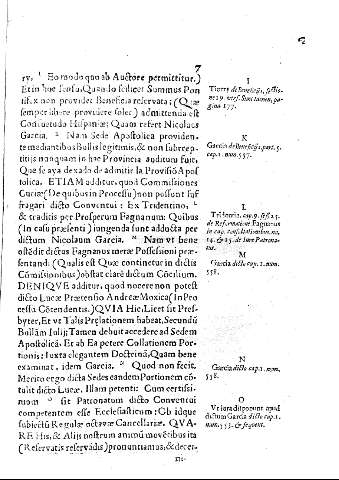 7
rv. Eo modo quo ab Auctore permittitur.)
Et in hoc sensu, Quando scilicet Summus Pon
tifex non providet Beneficia reservata; (Quæ
semper libere providere solet) admittenda est
Consuetudo Hispaniæ; Quam refert Nicolaus
Garcia. Nam Sede Apostolica providen-
te mediantibus Bullis legitimis, & non subrep-
titijs nunquam in hac Provincia auditum fuit,
Que se aya dexado de admitir la Provisiõ A pos
tolica. ETIAM additur, quod Commissiones
Curiæ (De quibus in Processu) non possunt suf
fragari dicto Conventui: Ex Tridentino,
& traditis per Prosperum Fagnanum: Quibus
(In casu præsenti) jungenda sunt adducta per
dictum Nicolaum Garcia. Nam vt bene
ostẽdit dictus Fagnanus meræ Possessioni præ-
sentand. (Qualis est Quæ continetur in dictis
Cõmissionibus) obstat clarè dictum Cõcilium.
DENIQVE additur, quod nocere non potest
dicto Lucæ Prætensio Andreæ Moxica (In Pro
cessu Cõtendentis.) QVIA Hic, Licet sit Pres-
byter, Et vt Talis Prelationem habeat, Secundũ
Bullam Iulij; Tamen debuit accedere ad Sedem
Apostolicã. Et ab Ea petere Collationem Por-
tionis: Iuxta elegantem Doctrinã, Quam bene
examinat, idem Garcia. Quod non fecit.
Merito ergo dicta Sedes eandem Portionem cõ
tulit dicto Lucæ. Illam petenti: Cum certissi-
mum sit Patronatum dicto Conventui
competentem esse Ecclesiasticum: Ob idque
subiectũ Regulæ octavæ Cancellariæ. QVA-
RE His, & Alijs nostrum animũ movẽtibus ita
(Reservatis reservãdis) pronuntiamus, & decer-
I
pagina 177.
K
Garcia de Beneficijs, part. 5.
cap. 1. num. 557.
L
M
Garcia dicto cap. 1. num.
558.
N
Garcia dicto cap. 1. num.
558.
O
Vt lora disponunt apud
dictum Garcia dicto cap. 1.
num. 553. & sequent.